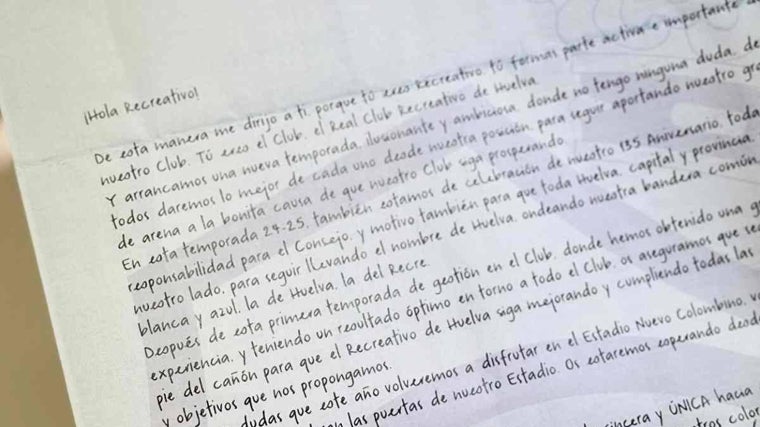 ¡Hola Recreativo!
De esta manera me dirijo a ti, porque tú eres Recreativo, tú formas parte activa e importante de
nuestro Club. Tú eres el Club, el Real Club Recreativo de Huelva.
Y arrancamos una nueva temporada, ilusionante y ambiciosa, donde no tengo ninguna duda, de
todos daremos lo mejor de cada uno desde nuestra posición, para seguir aportando nuestro
de arena a la bonita causa de que nuestro Club siga prosperando.
En esta temporada 24-25, también estamos de celebración de nuestro 135 Aniversario, toda
responsabilidad para el Consejo, y motivo también para que toda Huelva, capital y provincia,
nuestro lado, para seguir llevando el nombre de Huelva, ondeando nuestra bandera común,
blanca y azul, la de Huelva, la del Recre.
Después de esta primera temporada de gestión en el Club, donde hemos obtenido una
experiencia, y teniendo un resultado óptimo en torno a todo el Club, os aseguramos que
pie del cañón para que el Recreativo de Huelva siga mejorando y cumpliendo todas las
y objetivos que nos propongamos.
dudas que este año volveremos a disfrutar en el Estadio Nuevo Colombino,
las puertas de nuestro Estadio. Os estaremos esperando
sincera y ÚNICA hacia